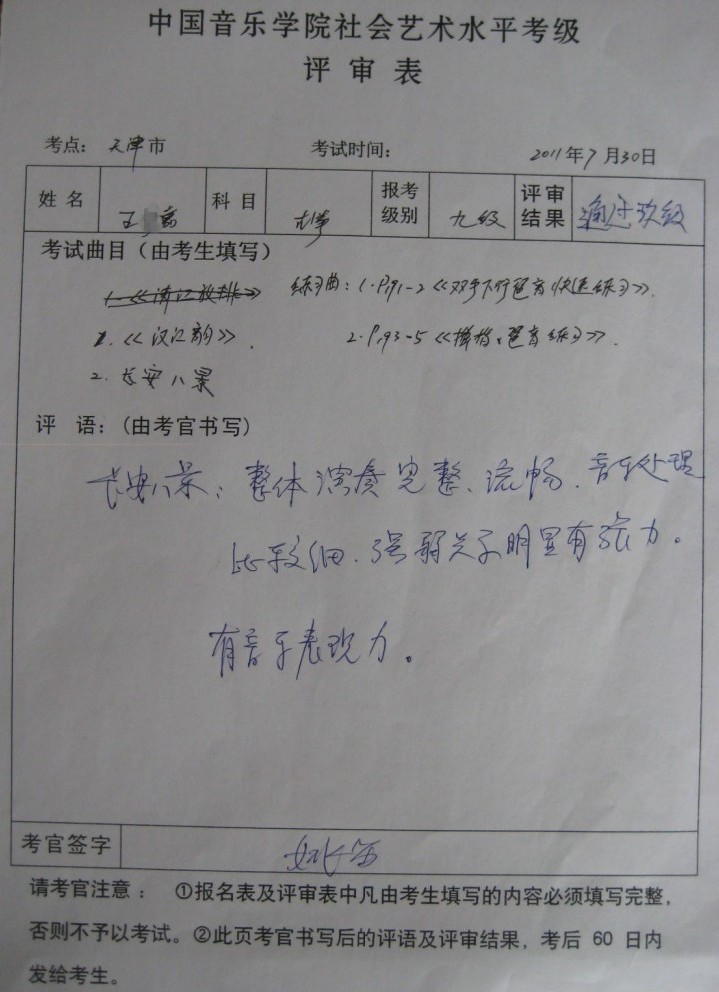 中国音乐学院社会艺术水平考级
评审表
考点：天津市 考试时间： 2011年7月30日
姓名 王 科目 古筝 报考级别 九级 评审结果 通过玖级
考试曲目（由考生填写）
1.《清江放排》 练习曲：1.P91-2《双手下行琶音快速练习》.
1.《汉江韵》. 2.P93-5《摇指、琶音练习》.
2.长安八景
评 语：(由考官书写)
长安八景：整体演奏完整、流畅.音乐处理
比较细.强弱关系明显有张力。
有音乐表现力。
考官签字
请考官注意： ①报名表及评审表中凡由考生填写的内容必须填写完整，
否则不予以考试。②此页考官书写后的评语及评审结果，考后 60 日内
发给考生。